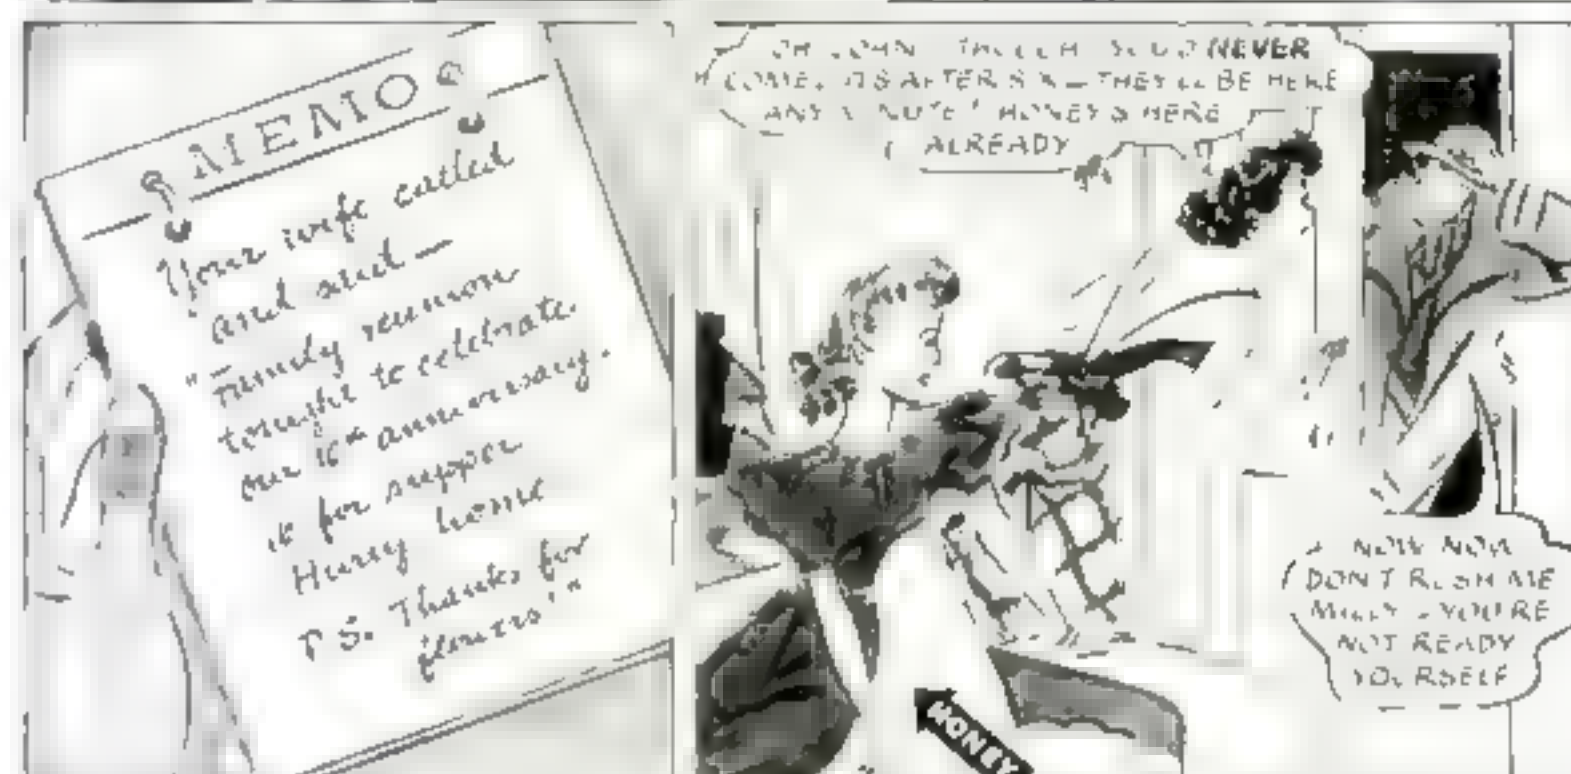 MEMO
Your wife called
and said —
"Family reunion
tonight to celebrate
our 16th anniversary.
for supper
Hurry home
P.S. Thanks for
flowers!"
OH JOHN THOUGHT YOU'D NEVER
COME. IT'S AFTER SIX — THEY'LL BE HERE
ANY MINUTE! HONEY'S HERE
ALREADY
NOW NOW
DON'T RUSH ME
MILLY - YOU'RE
NOT READY
YOURSELF
HONEY